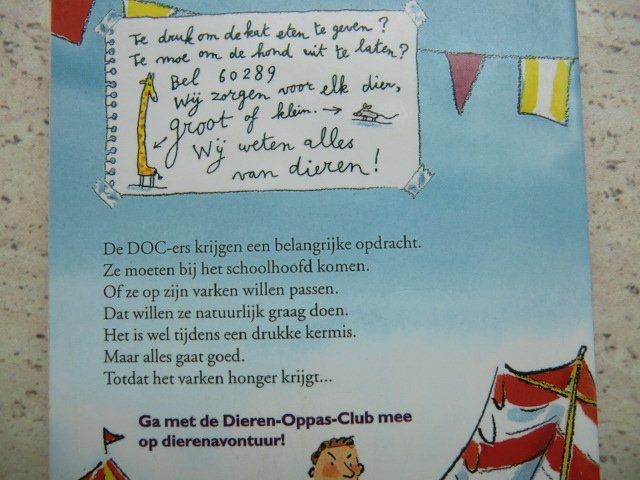 Te druk om de kat eten te geven?
Te moe om de hond uit te laten?
Bel 60289
Wij zorgen voor elk dier,
groot of klein.
Wij weten alles
van dieren!
De DOC-ers krijgen een belangrijke opdracht.
Ze moeten bij het schoolhoofd komen.
Of ze op zijn varken willen passen.
Dat willen ze natuurlijk graag doen.
Het is wel tijdens een drukke kermis.
Maar alles gaat goed.
Totdat het varken honger krijgt...
Ga met de Dieren-Oppas-Club mee
op dierenavontuur!